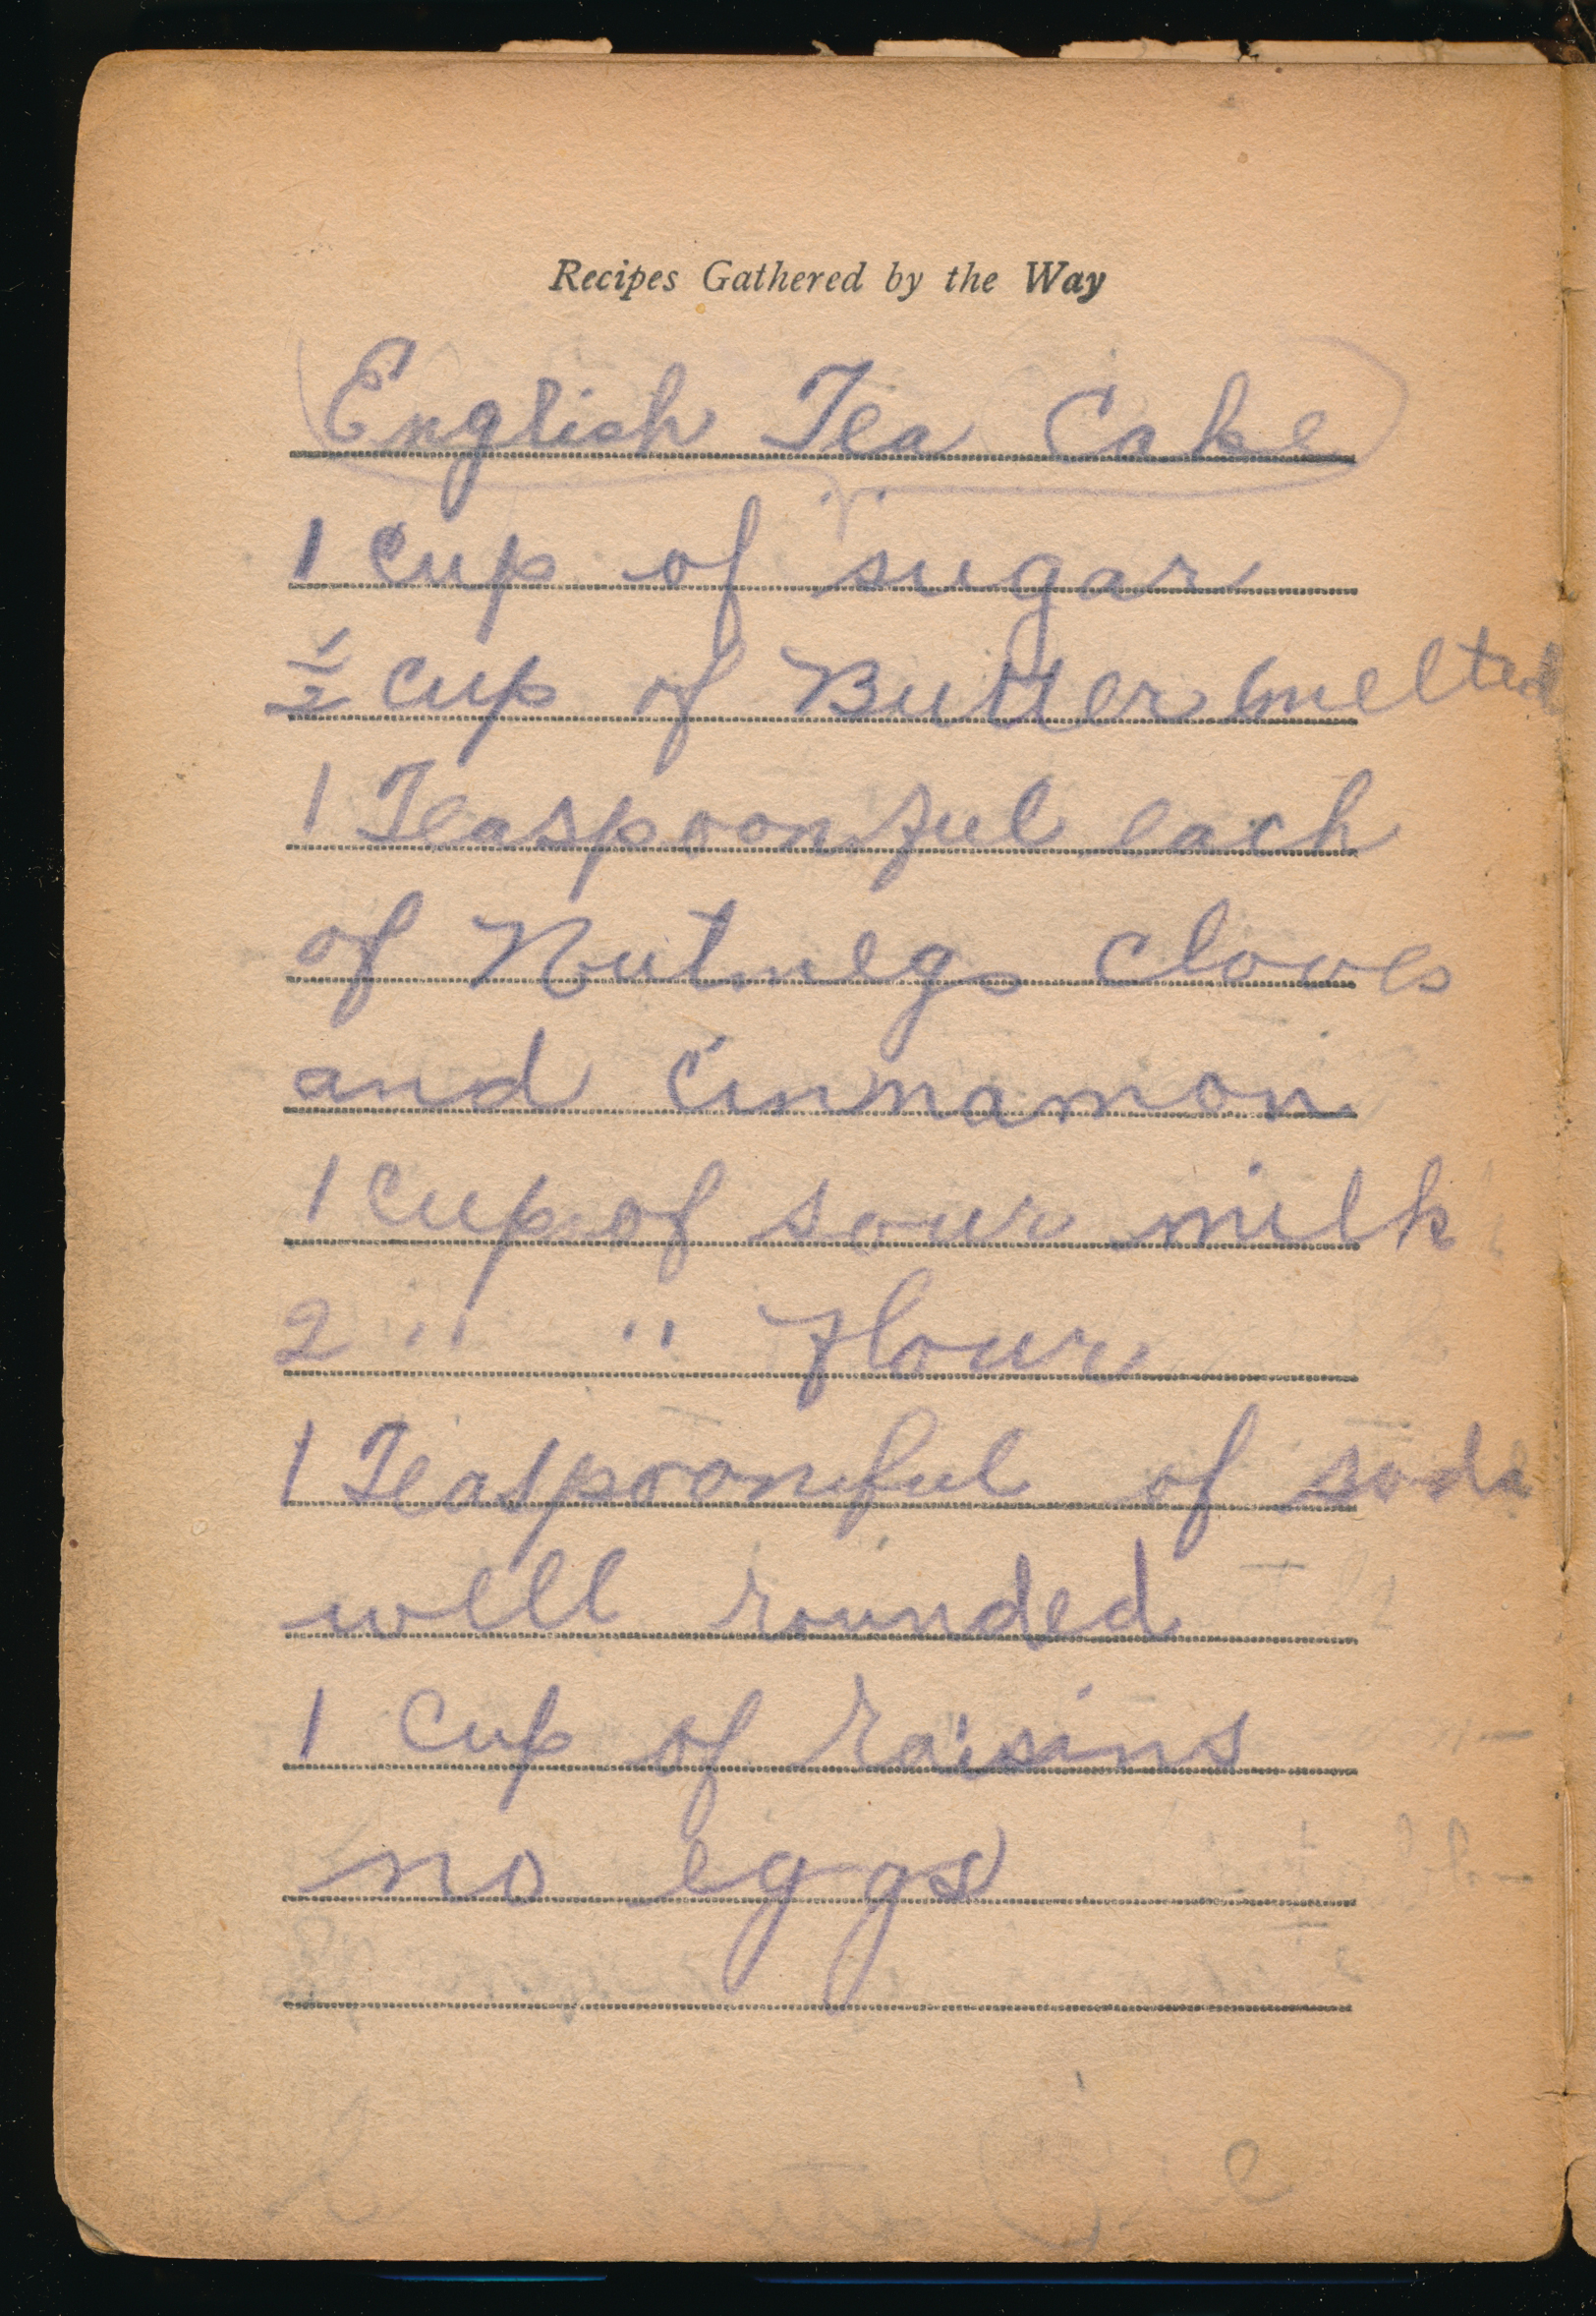 Recipes Gathered by the Way
English Tea Cake
1 cup of sugar
½ cup of Butter melted
1 Teaspoonful each
of Nutmegs cloves
and Cinnamon
1 cup of sour milk
2 " " flour
1 Teaspoonful of soda
well rounded
1 Cup of raisins
no eggs